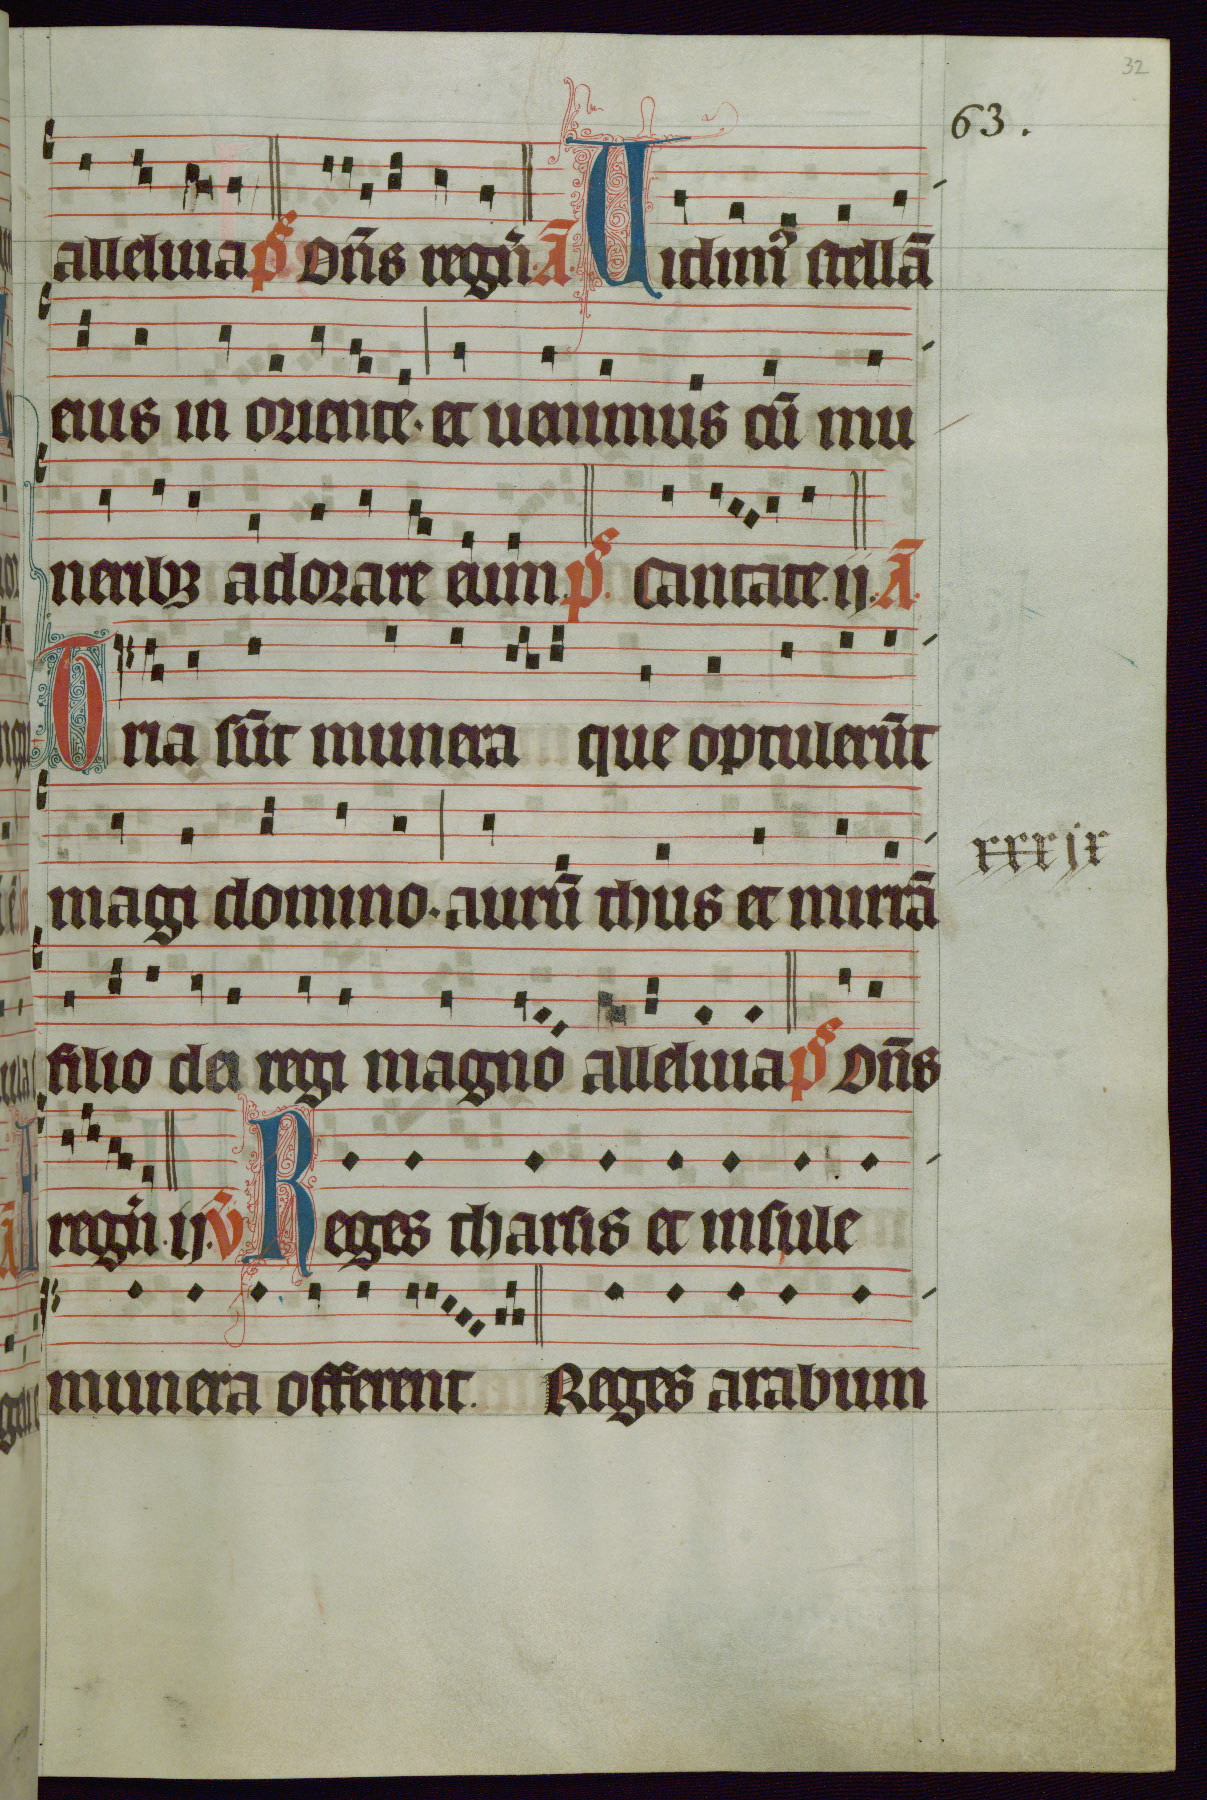 32
63.
alleluia p̄s Dn̄s regn̄. Ā. Uidim⁹ stellā
eius in oriente · et uenimus cū mu
nerib₃ adorare eum. p̄s. Cantate. ij. Ā.
Tria sūt munera que optulerūt
magi domino · aurū thus et mirrā
xxxix
filio dei regi magno alleluia p̄s Dn̄s
regn̄. ij. v̄ Reges tharsis et insule
munera offerent. Reges arabum